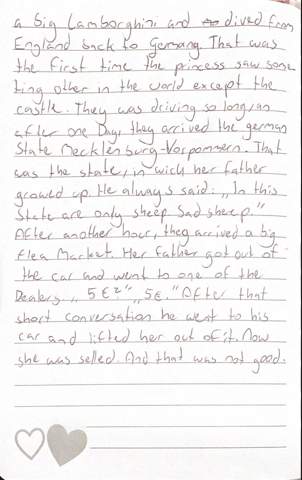 a big Lamborghini and dived from
England back to Germany. That was
the first time the princess saw some
ting other in the world except the
castle. They was driving so long an
after one Day, they arrived the german
State Mecklenburg-Vorpommern. That
was the state, in wich her father
growed up. He always said: „In this
State are only sheep. Sad sheep."
After another hour, they arrived a big
flea Market. Her father got out of
the car and went to one of the
Dealers „5€?" „5€." After that
short conversation he went to his
car and lifted her out of it. Now
she was selled. And that was not good.